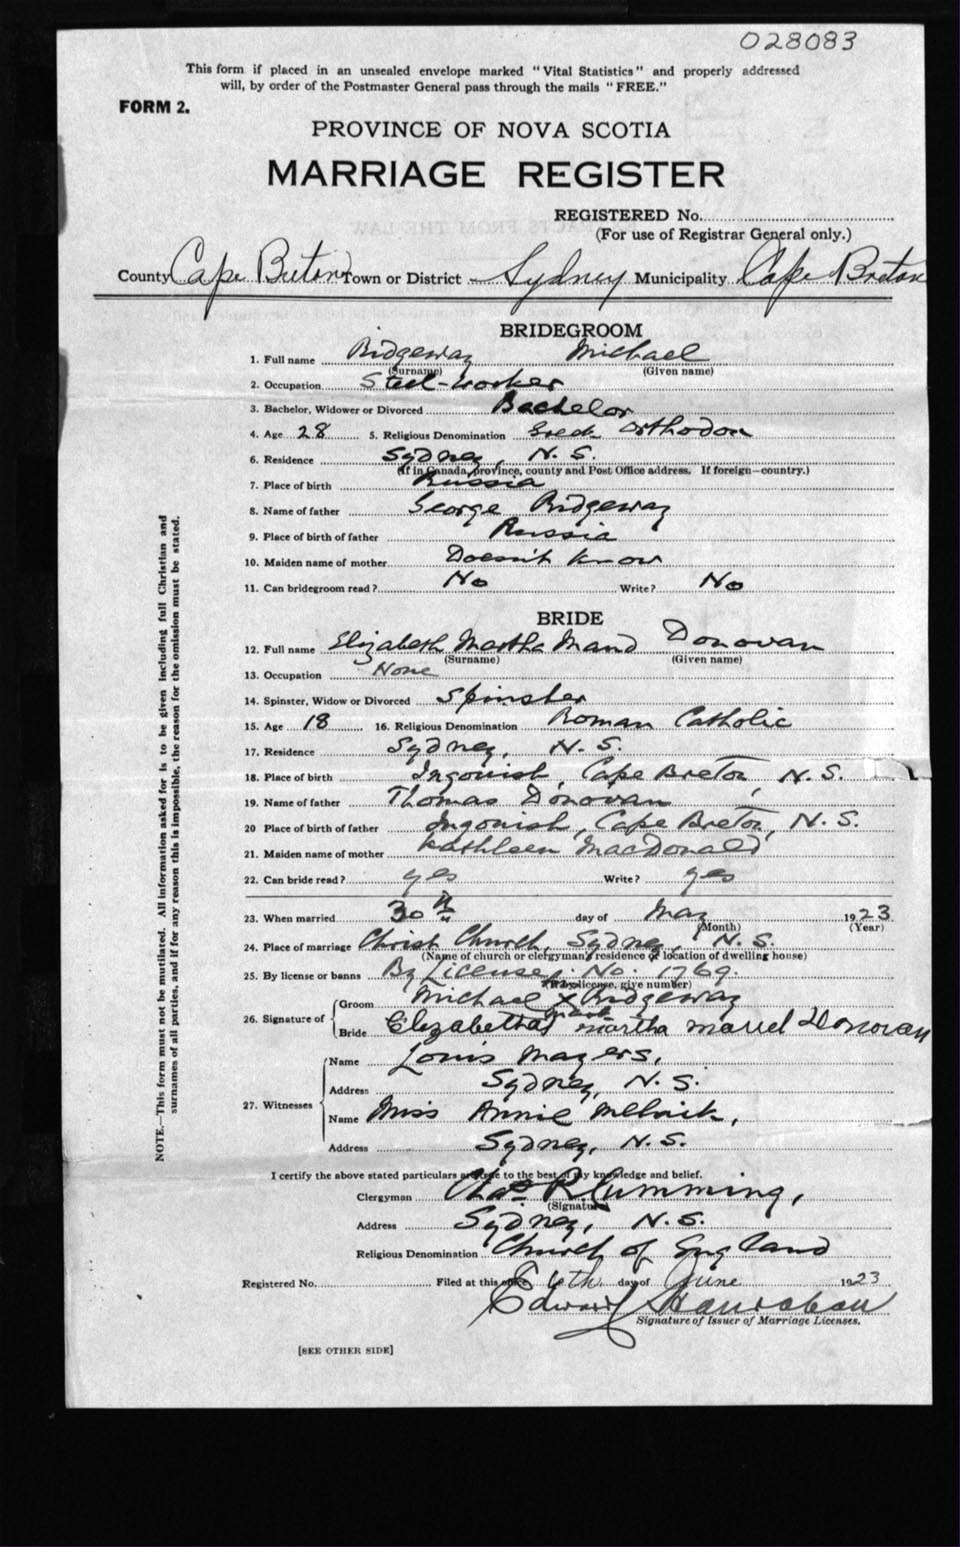 028083
This form if placed in an unsealed envelope marked "Vital Statistics" and properly addressed
will, by order of the Postmaster General pass through the mails "FREE."
FORM 2.
PROVINCE OF NOVA SCOTIA
MARRIAGE REGISTER
REGISTERED No.
(For use of Registrar General only.)
County Cape Breton Town or District Sydney Municipality Cape Breton
BRIDEGROOM
1. Full name Ridgeway Michael
(Surname) (Given name)
2. Occupation Steel-worker
3. Bachelor, Widower or Divorced Bachelor
4. Age 28 5. Religious Denomination Greek Orthodox
6. Residence Sydney, N. S.
(If in Canada, province, county and Post Office address. If foreign—country.)
7. Place of birth Russia
8. Name of father George Ridgeway
9. Place of birth of father Russia
10. Maiden name of mother Doesn't know
11. Can bridegroom read? No Write? No
BRIDE
12. Full name Elizabeth Martha Maud Donovan
(Surname) (Given name)
13. Occupation None
14. Spinster, Widow or Divorced Spinster
15. Age 18 16. Religious Denomination Roman Catholic
17. Residence Sydney, N. S.
18. Place of birth Ingonish, Cape Breton, N. S.
19. Name of father Thomas Donovan
20 Place of birth of father Ingonish, Cape Breton, N. S.
21. Maiden name of mother Kathleen MacDonald
22. Can bride read? yes Write? yes
23. When married 30th day of May 1923
(Month) (Year)
24. Place of marriage Christ Church, Sydney, N. S.
(Name of church or clergyman's residence or location of dwelling house)
25. By license or banns By License, No. 1769.
(If by license, give number)
26. Signature of
Groom Michael X Ridgeway
mark
Bride Elizabetha Martha Donovan
27. Witnesses
Name Louis Mazers,
Address Sydney, N. S.
Name Miss Annie Melnik,
Address Sydney, N. S.
I certify the above stated particulars are true to the best of my knowledge and belief.
Clergyman Chas R. Cumming,
(Signature)
Address Sydney, N. S.
Religious Denomination Church of England
Registered No. Filed at this office, 6th day of June 1923
Edward Hanrahan
Signature of Issuer of Marriage Licenses.
[SEE OTHER SIDE]
NOTE.—This form must not be mutilated. All information asked for is to be given including full Christian and
surnames of all parties, and if for any reason this is impossible, the reason for the omission must be stated.